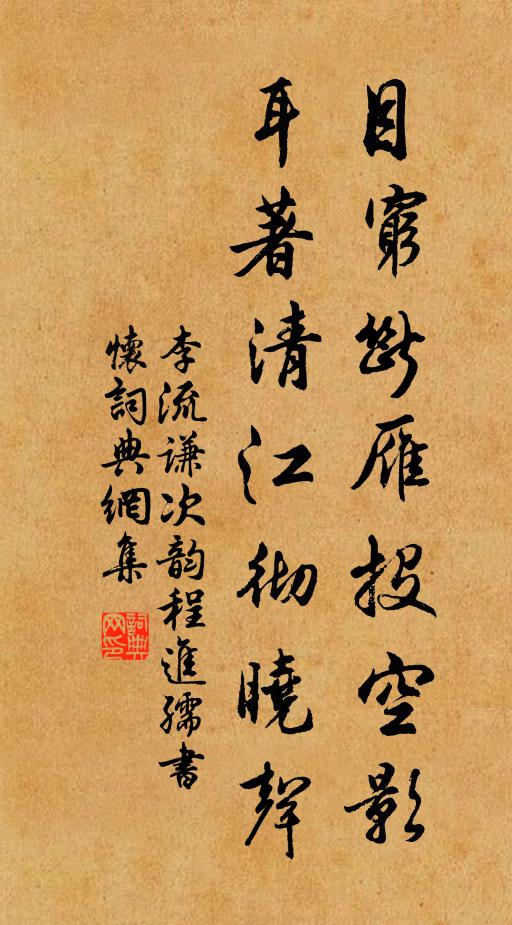 目窮斷雁投空影
耳著清江徹曉聲
李流謙次韵程進孺書
懷詞典網集
詞典
网印